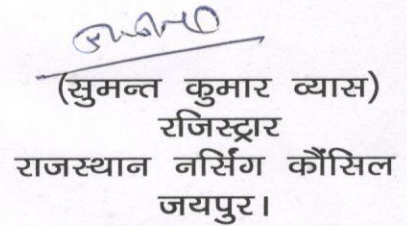 (सुमन्त कुमार व्यास)
रजिस्ट्रार
राजस्थान नर्सिंग कौंसिल
जयपुर।